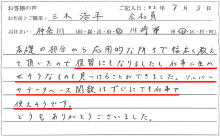 お客様の声 ご記入日:02年7月3日
お名前とご職業: 三木 浩平 会社員
ご住所: 神奈川 県 川崎市
基礎の部分から応用的な所まで幅広く教え
て頂いたので復習にもなりましたし、仕事に生か
せそうなものも見つけることができました。ソルバー
やデータベース関数はすぐにでも仕事で
使えそうです。
どうもありがとうございました。